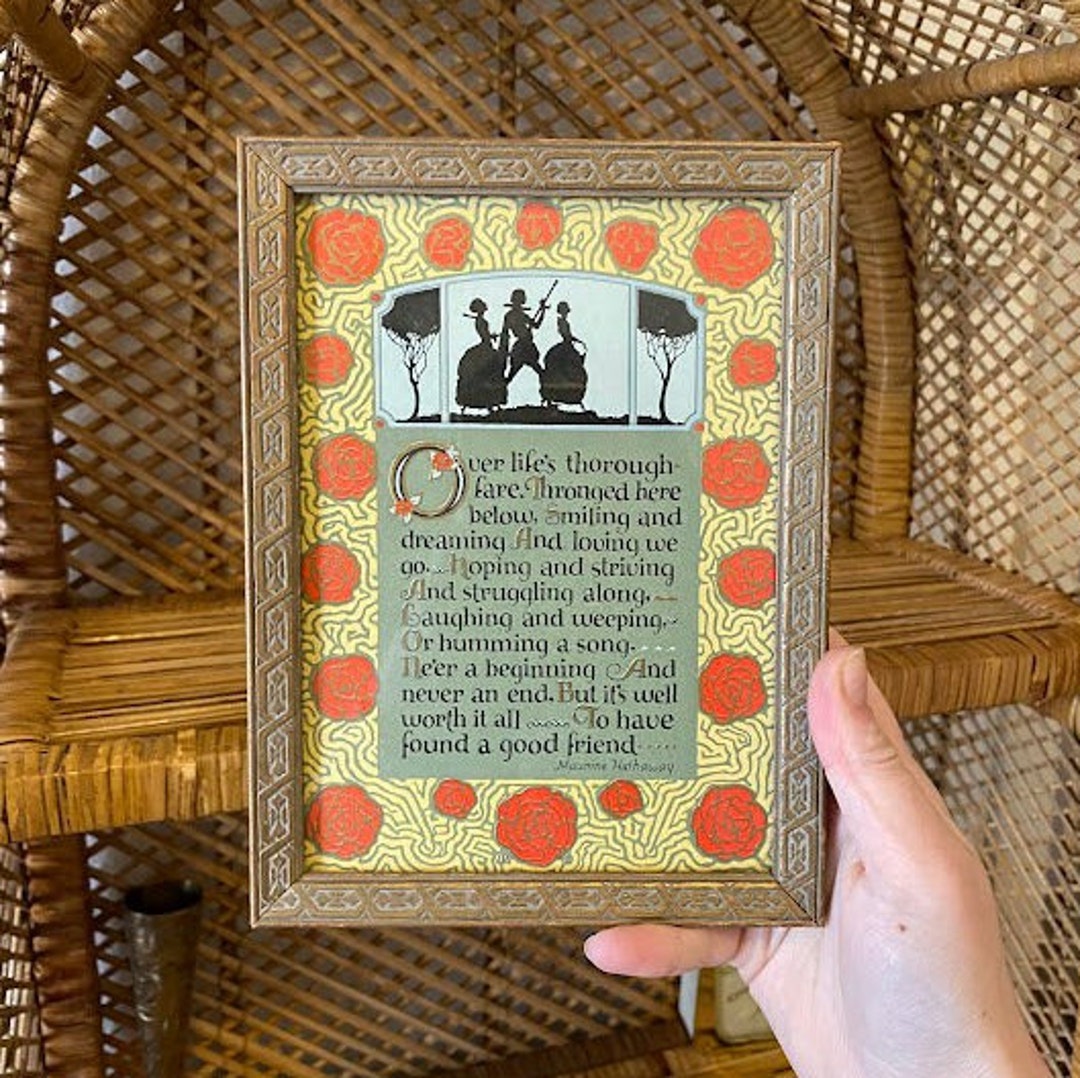 Over life's thorough-
fare. Thronged here
below, Smiling and
dreaming And loving we
go... Hoping and striving
And struggling along,
Laughing and weeping,
Or humming a song.....
Ne'er a beginning And
never an end. But it's well
worth it all ~~~ To have
found a good friend.....
Maxine Hathaway